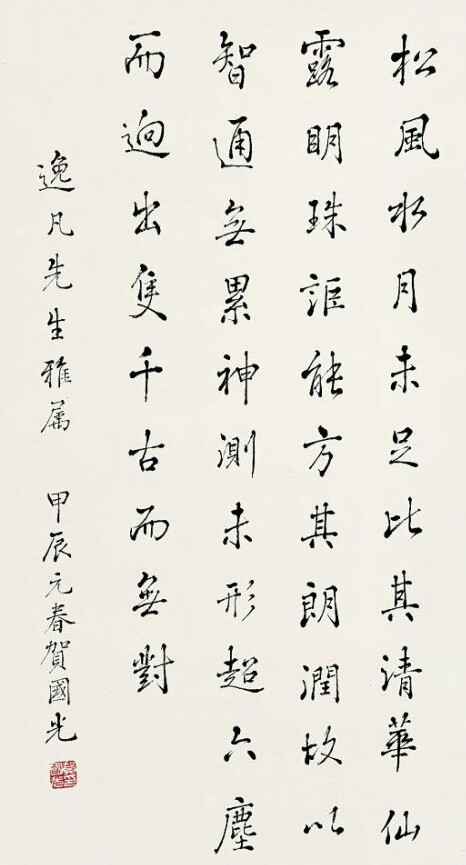 松風水月未足比其清華仙
露明珠詎能方其朗潤故以
智通無累神測未形超六塵
而迥出隻千古而無對
逸凡先生雅属 甲辰元春賀國光